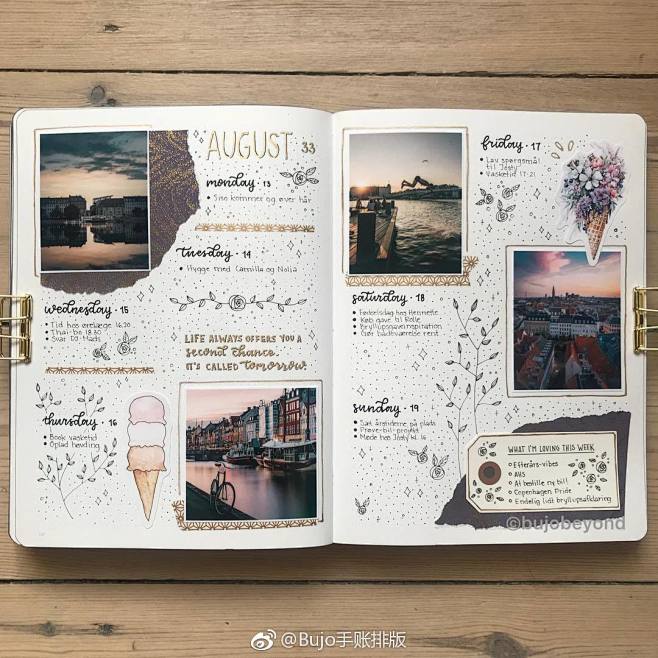 AUGUST 33
monday · 13
• Siso kommer og øver hår
tuesday · 14
• Hygge med Camilla og Nolia
wednesday · 15
• Tid hos ørelæge 16.20
• Thai-bo 18.30
• Svar DJ Mads
LIFE ALWAYS OFFERS YOU A
second chance.
IT'S CALLED tomorrow.
thursday · 16
• Book vasketid
• Oplad høvding
friday · 17
• Lav spørgsmål
til Josty
• Vasketid 17-21
saturday · 18
• Fødselsdag hos Hennette
• Køb gave til Rolle
• Bryllupsgaveinspiration
• Gør badeværelse rent
sunday · 19
• Sæt årstiderne på plads
• Prøve-bil-projekt
• Møde hos Josty kl. 16
WHAT I'M LOVING THIS WEEK
Efterårs-vibes
AHS
At bestille ny bil!
Copenhagen Pride
Endelig lidt bryllupsafklaring
@bujobeyond
@Bujo手账排版